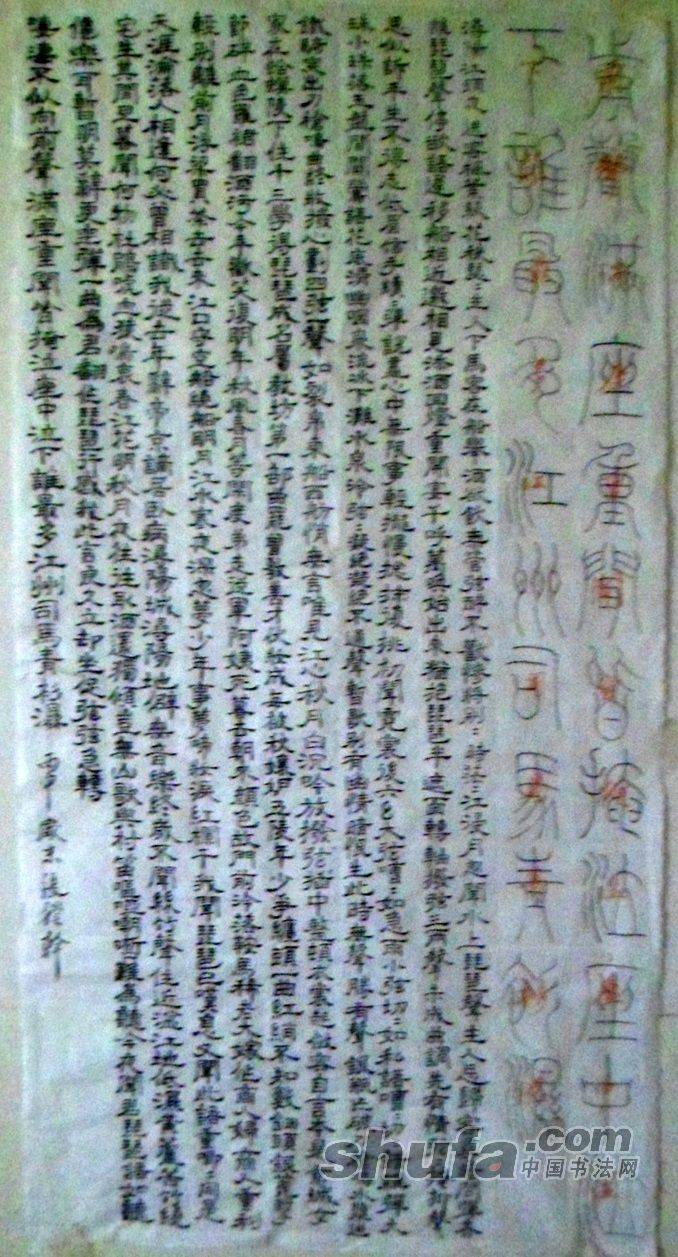 聲滿座重聞皆掩泣座中泣
下誰最多江州司馬青衫濕
江頭夜送客楓葉荻花秋瑟:主人下馬客在船舉酒欲飲無管弦醉不歡慘將別:時茫:江浸月忽聞水上琵琶聲主人忘歸客
琵琶聲停欲語遲移船相近邀相見添酒回燈重開宴千呼萬喚始出來猶抱琵琶半遮面轉軸撥弦三兩聲未成曲調先有情
思似訴平生不得志低眉信手續:彈說盡心中無限事輕攏慢撚抹復挑初為霓裳後六幺大弦嘈:如急雨小弦切:如私語嘈:切:彈大
珠小珠落玉盤間關鶯語花底滑幽咽泉流冰下灘水泉冷澀弦凝絕凝絕不通聲暫歇別有幽情暗恨生此時無聲勝有聲銀瓶乍破水漿迸
鐵騎突出刀槍鳴曲終收撥當心劃四弦一聲如裂帛東船西舫悄無言唯見江心秋月白沉吟放撥插弦中整頓衣裳起斂容自言本是京城女
家在蝦蟆陵下住十三學得琵琶成名屬教坊第一部曲罷曾教善才伏妝成每被秋娘妒五陵年少爭纏頭一曲紅綃不知數鈿頭銀篦擊
節碎血色羅裙翻酒污今年歡笑復明年秋月春風等閒度弟走從軍阿姨死暮去朝來顏色故門前冷落鞍馬稀老大嫁作商人婦商人重利
輕別離前月浮梁買茶去去來江口守空船繞船明月江水寒夜深忽夢少年事夢啼妝淚紅闌干我聞琵琶已嘆息又聞此語重唧唧同是
天涯淪落人相逢何必曾相識我從去年辭帝京謫居臥病潯陽城潯陽地僻無音樂終歲不聞絲竹聲住近湓江地低濕黃蘆苦竹繞
宅生其間旦暮聞何物杜鵑啼血猿哀鳴春江花朝秋月夜往往取酒還獨傾豈無山歌與村笛嘔啞嘲哳難為聽今夜聞君琵琶語如聽
仙樂耳暫明莫辭更坐彈一曲為君翻作琵琶行感我此言良久立卻坐促弦弦急轉
淒淒不似向前聲滿座重聞皆掩泣座中泣下誰最多江州司馬青衫濕
shufa.com
中国书法网